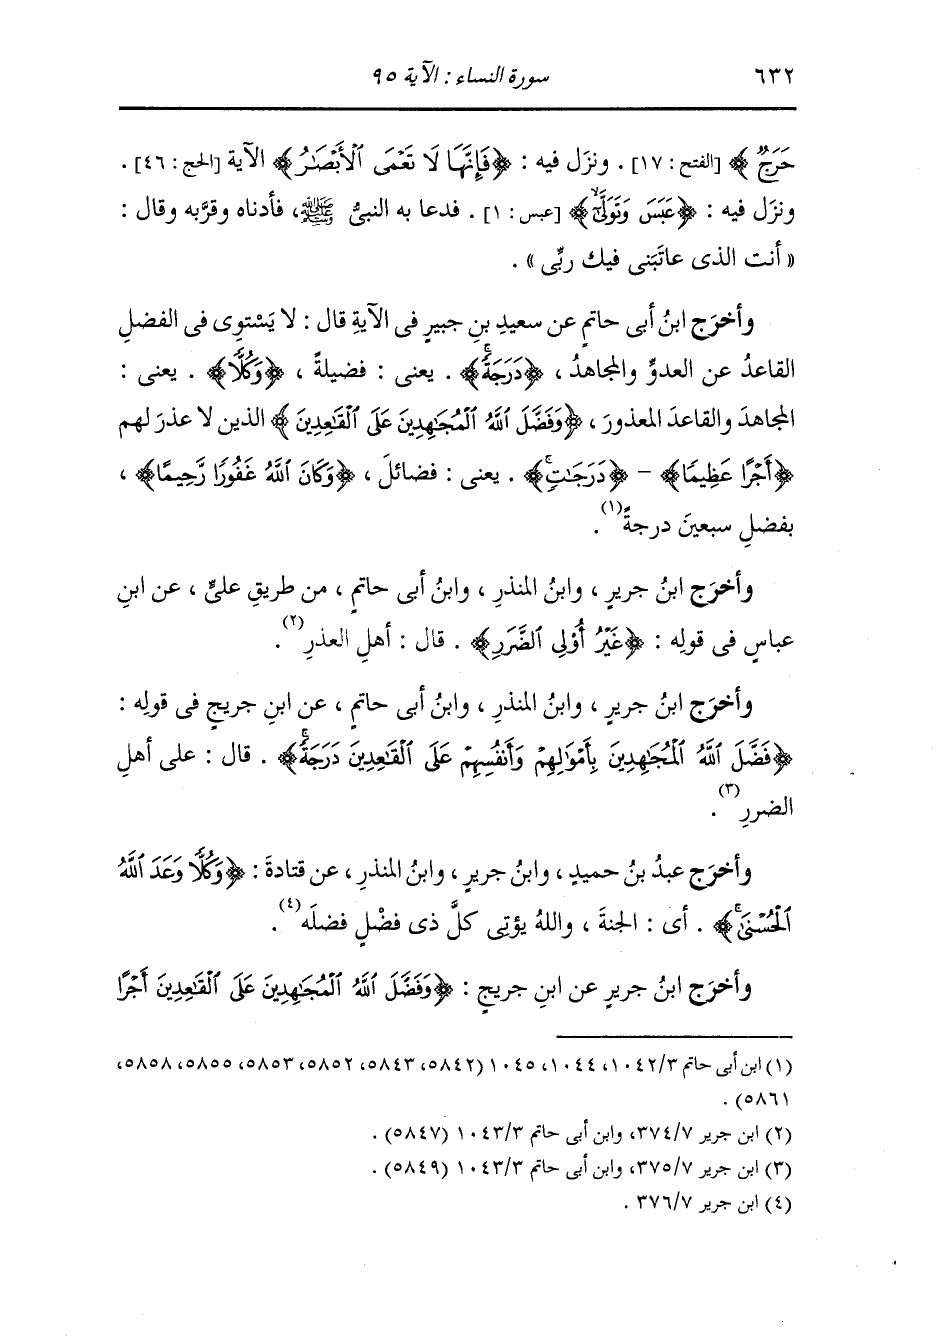 ٦٣٢
سورة النساء : الآية ٩٥
حَرَجٌ ﴾ [الفتح : ١٧] . ونزَل فيه : ﴿فَإِنَّهَا لَا تَعْمَى ٱلْأَبْصَٰرُ﴾ الآية [الحج : ٤٦] .
ونزَل فيه : ﴿عَبَسَ وَتَوَلَّىٰٓ﴾ [عبس : ١] . فدعا به النبىُّ ﷺ، فأدناه وقرَّبه وقال :
« أنت الذى عاتَبَنى فيك ربِّى » .
وأخرَج ابنُ أبى حاتمٍ عن سعيدِ بنِ جبيرٍ فى الآيةِ قال : لا يَسْتوِى فى الفضلِ
القاعدُ عن العدوِّ والمجاهدُ ، ﴿دَرَجَةًۚ﴾ . يعنى : فضيلةً ، ﴿وَكُلًّا﴾ . يعنى :
المجاهدَ والقاعدَ المعذورَ ، ﴿وَفَضَّلَ ٱللَّهُ ٱلْمُجَٰهِدِينَ عَلَى ٱلْقَٰعِدِينَ ﴾ الذين لا عذرَ لهم
﴿أَجْرًا عَظِيمًا﴾ – ﴿دَرَجَٰتٍۚ﴾ . يعنى : فضائلَ ، ﴿وَكَانَ ٱللَّهُ غَفُورًا رَّحِيمًا﴾ ،
بفضلِ سبعينَ درجةً(١).
وأخرَج ابنُ جريرٍ ، وابنُ المنذرِ ، وابنُ أبى حاتمٍ ، من طريقِ علىٍّ ، عن ابنِ
عباسٍ فى قولِه : ﴿غَيْرُ أُو۟لِى ٱلضَّرَرِ﴾ . قال : أهلِ العذرِ(٢).
وأخرَج ابنُ جريرٍ ، وابنُ المنذرِ ، وابنُ أبى حاتمٍ ، عن ابنِ جريجٍ فى قولِه :
﴿فَضَّلَ ٱللَّهُ ٱلْمُجَٰهِدِينَ بِأَمْوَٰلِهِمْ وَأَنفُسِهِمْ عَلَى ٱلْقَٰعِدِينَ دَرَجَةًۚ﴾ . قال : على أهلِ
الضررِ(٣).
وأخرَج عبدُ بنُ حميدٍ ، وابنُ جريرٍ ، وابنُ المنذرِ ، عن قتادةَ : ﴿وَكُلًّا وَعَدَ ٱللَّهُ
ٱلْحُسْنَىٰۚ﴾ . أى : الجنةَ ، واللهُ يؤتِى كلَّ ذى فضْلٍ فضلَه(٤).
وأخرَج ابنُ جريرٍ عن ابنِ جريجٍ : ﴿وَفَضَّلَ ٱللَّهُ ٱلْمُجَٰهِدِينَ عَلَى ٱلْقَٰعِدِينَ أَجْرًا
(١) ابن أبى حاتم ١٠٤٢/٣، ١٠٤٤، ١٠٤٥ (٥٨٤٢، ٥٨٤٣، ٥٨٥٢، ٥٨٥٣، ٥٨٥٥، ٥٨٥٨،
٥٨٦١) .
(٢) ابن جرير ٣٧٤/٧، وابن أبى حاتم ١٠٤٣/٣ (٥٨٤٧) .
(٣) ابن جرير ٣٧٥/٧، وابن أبى حاتم ١٠٤٣/٣ (٥٨٤٩) .
(٤) ابن جرير ٣٧٦/٧ .